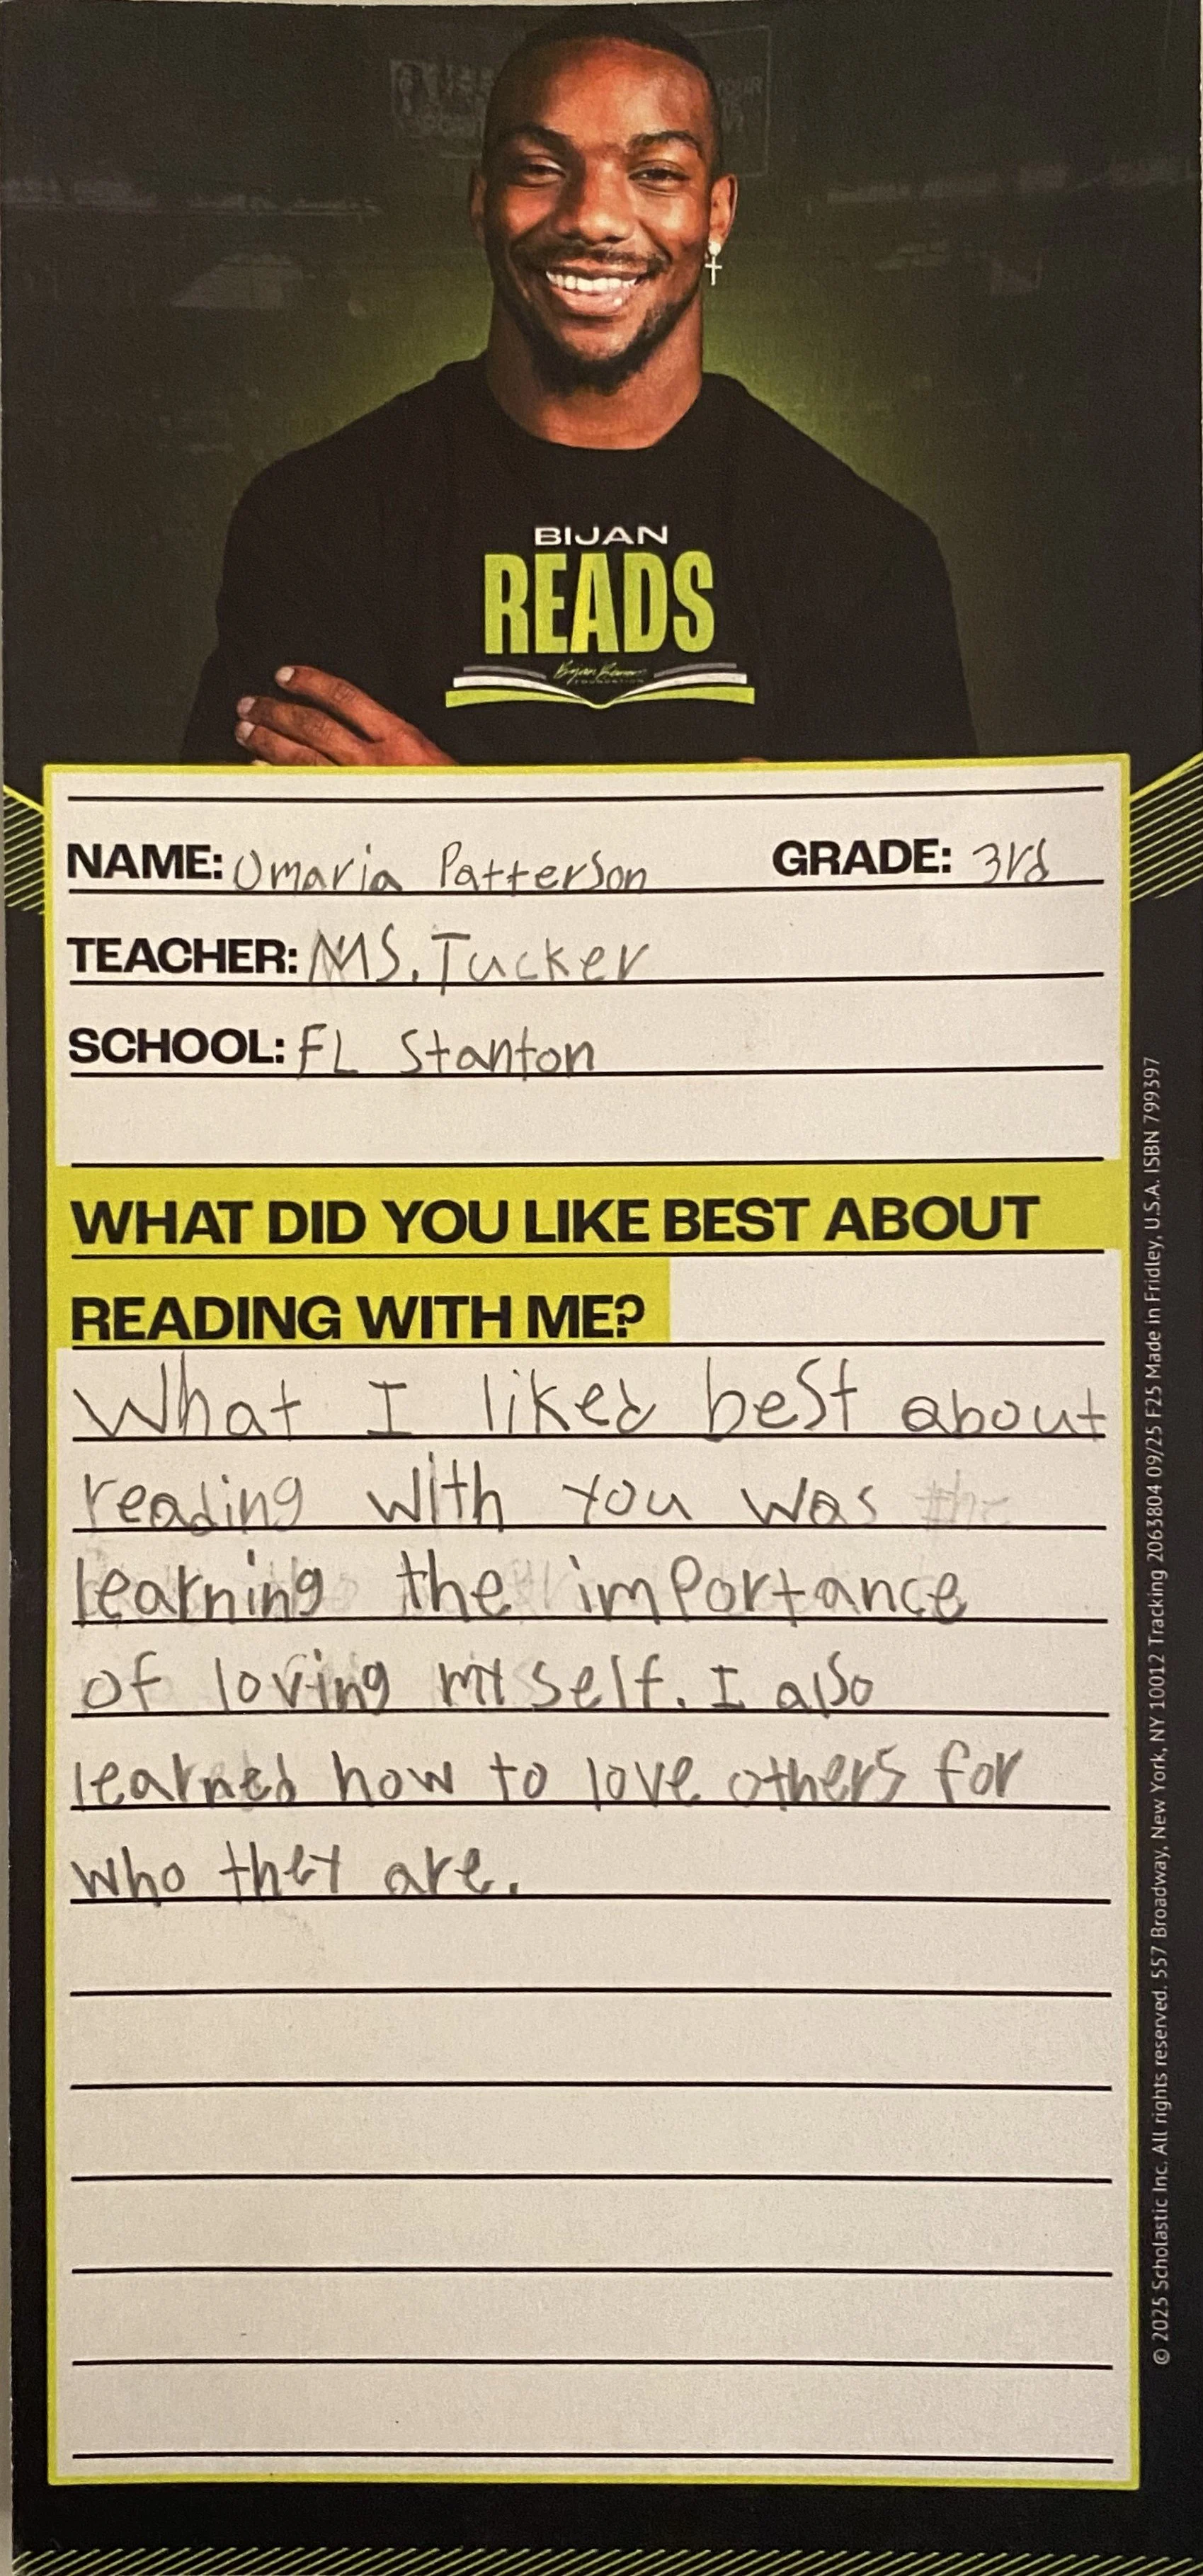 BIJAN
READS
NAME: Omaria Patterson GRADE: 3rd
TEACHER: MS. Tucker
SCHOOL: FL Stanton
WHAT DID YOU LIKE BEST ABOUT
READING WITH ME?
What I liked best about
reading with you was
learning the importance
of loving my self. I also
learned how to love others for
who they are.
© 2025 Scholastic Inc. All rights reserved. 557 Broadway, New York, NY 10012 Tracking 2063804 09/25 F25 Made in Fridley, U.S.A. ISBN 799397